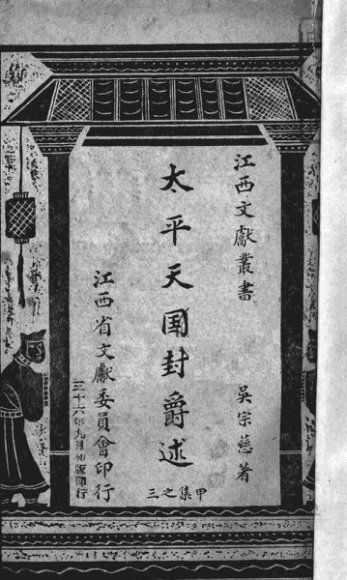 江西文獻叢書
吳宗慈著
太平天囯封爵述
甲集之三
江西省文獻委員會印行
三十六年九月初版印行